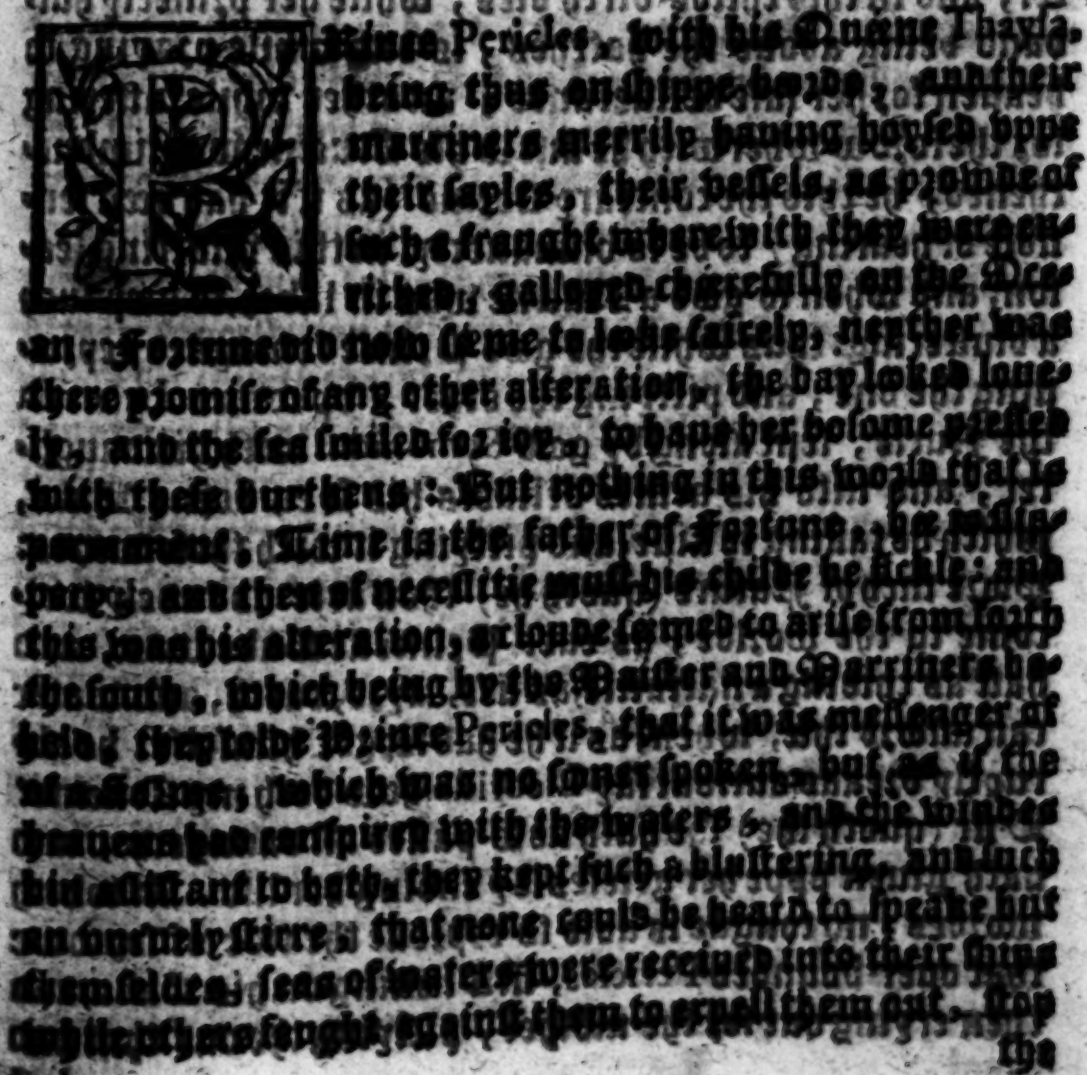 PRince Pericles, with his Queene Thaysa,
being thus on shippe-borde, and their
marriners merrily hauing hoysed vppe
their sayles, their vessels, as prowde of
such a fraught wherewith they were en-
riched, galloped cheerefully on the Oce-
an, Fortune did now seeme to looke fairely, neyther was
there promise of any other alteration, the day looked loue-
ly, and the sea smiled for ioy, to haue her bosome pressed
with these burthens: But nothing in this world that is
permanent, Time is the father of Fortune, hee is slip-
pery, and then of necessitie must his childe be fickle: and
this was his alteration, a clowde seemed to arise from forth
the south, which being by the Maister and Marriners be-
held, they tolde Prince Pericles, that it was messenger of
of a storme, which was no sooner spoken, but as if the
heauens had conspired with the waters, and the windes
bin assistant to both, they kept such a blustering, and such
an vnruely stirre, that none could be heard to speake but
themselues, seas of waters were receiued into their ships
while others fought against them to expell them out, stop
the